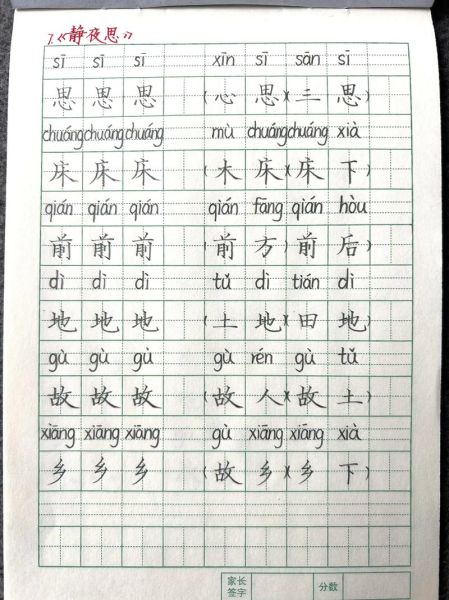 7.《静夜思》
sī sī sī xīn sī sān sī
思 思 思 (心 思)(三 思)
chuáng chuáng chuáng mù chuáng chuáng xià
床 床 床 (木 床)(床 下)
qián qián qián qián fāng qián hòu
前 前 前 (前 方)(前 后)
dì dì dì tǔ dì tián dì
地 地 地 (土 地)(田 地)
gù gù gù gù rén gù tǔ
故 故 故 (故 人)(故 土)
xiāng xiāng xiāng gù xiāng xiāng xià
乡 乡 乡 (故 乡)(乡 下)
家长签字 分数